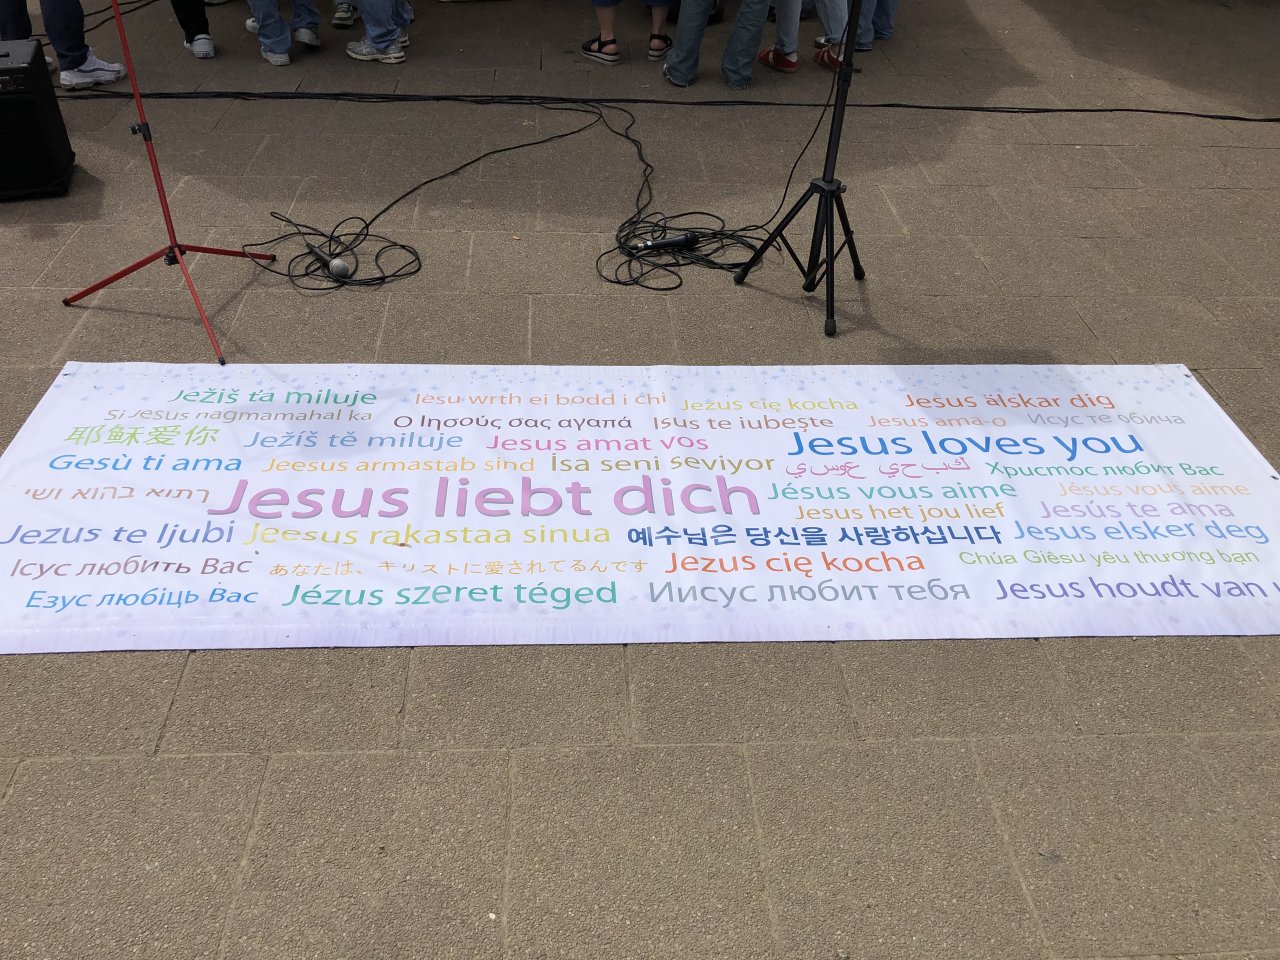 Ježiš ťa miluje
Iesu wrth ei bodd i chi
Jezus cię kocha
Jesus älskar dig
Si Jesus nagmamahal ka
Ο Ιησούς σας αγαπά
Isus te iubeşte
Jesus ama-o
Исус те обича
耶稣爱你
Ježíš tě miluje
Jesus amat vos
Jesus loves you
Gesù ti ama
Jeesus armastab sind
İsa seni seviyor
يسوع يحبك
Христос любит Вас
ישו אוהב אותך
Jesus liebt dich
Jésus vous aime
Jésus vous aime
Jesus het jou lief
Jesús te ama
Jezus te ljubi
Jeesus rakastaa sinua
예수님은 당신을 사랑하십니다
Jesus elsker deg
Ісус любить Вас
あなたは、キリストに愛されてるんです
Jezus cię kocha
Chúa Giêsu yêu thương bạn
Езус любіць Вас
Jézus szeret téged
Иисус любит тебя
Jesus houdt van